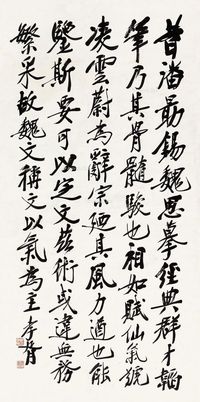 昔潘勗錫魏思摹經典群才韜
筆乃其骨髓駿也相如賦仙氣號
凌雲蔚為辭宗廼其風力遒也能
鑒斯要可以定文茲術或違無務
繁采故魏文稱文以氣為主